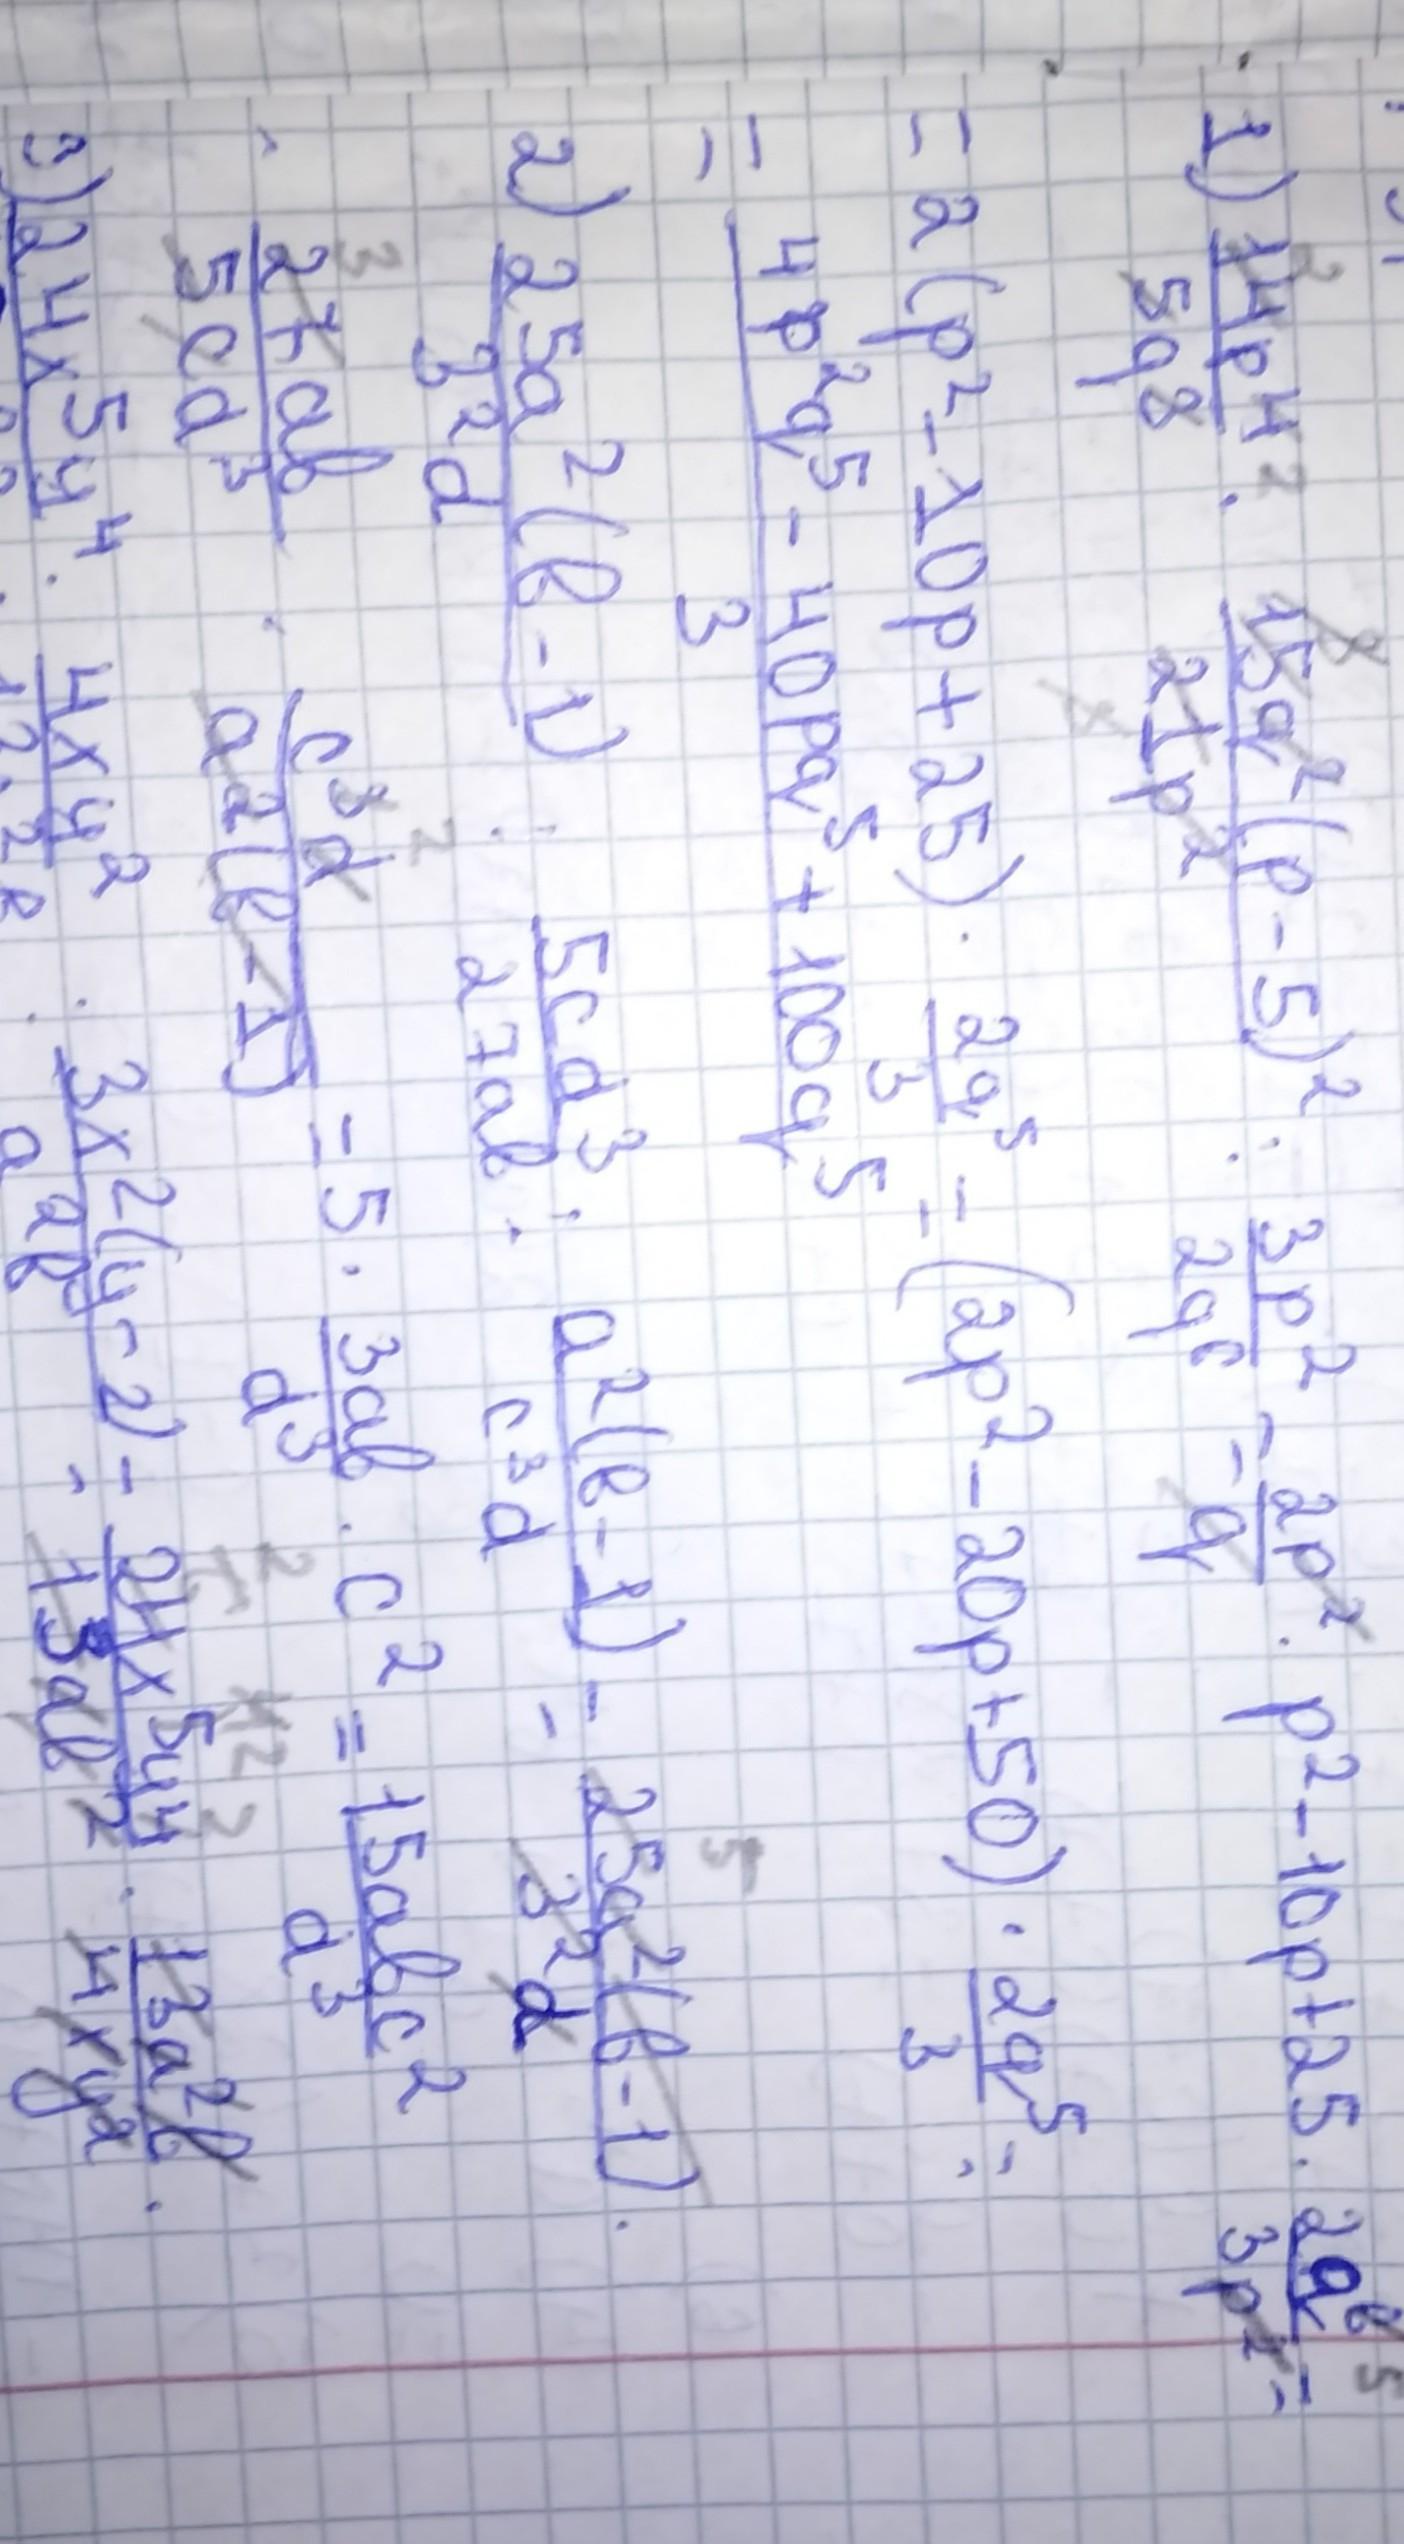 1) 14p⁴/5q⁸ · 15q²(p-5)²/21p² : 3p²/2q⁶ = 2p²/q · p²-10p+25 · 2q⁶/3p² =
= 2(p²-10p+25) · 2q⁵/3 = (2p²-20p+50) · 2q⁵/3 =
= 4p²q⁵-40pq⁵+100q⁵/3
2) 25a²(b-1)/3²d : 5cd³/27ab : a²(b-1)/c³d = 25a²(b-1)/3²d ·
· 27ab/5cd³ · c³d/a²(b-1) = 5 · 3ab/d³ · c² = 15abc²/d³
3) 24x⁵y⁴ : 4xy² · 3x²(y-2) = 24x⁵y⁴/13ab² · 13a²b/4xy² ·